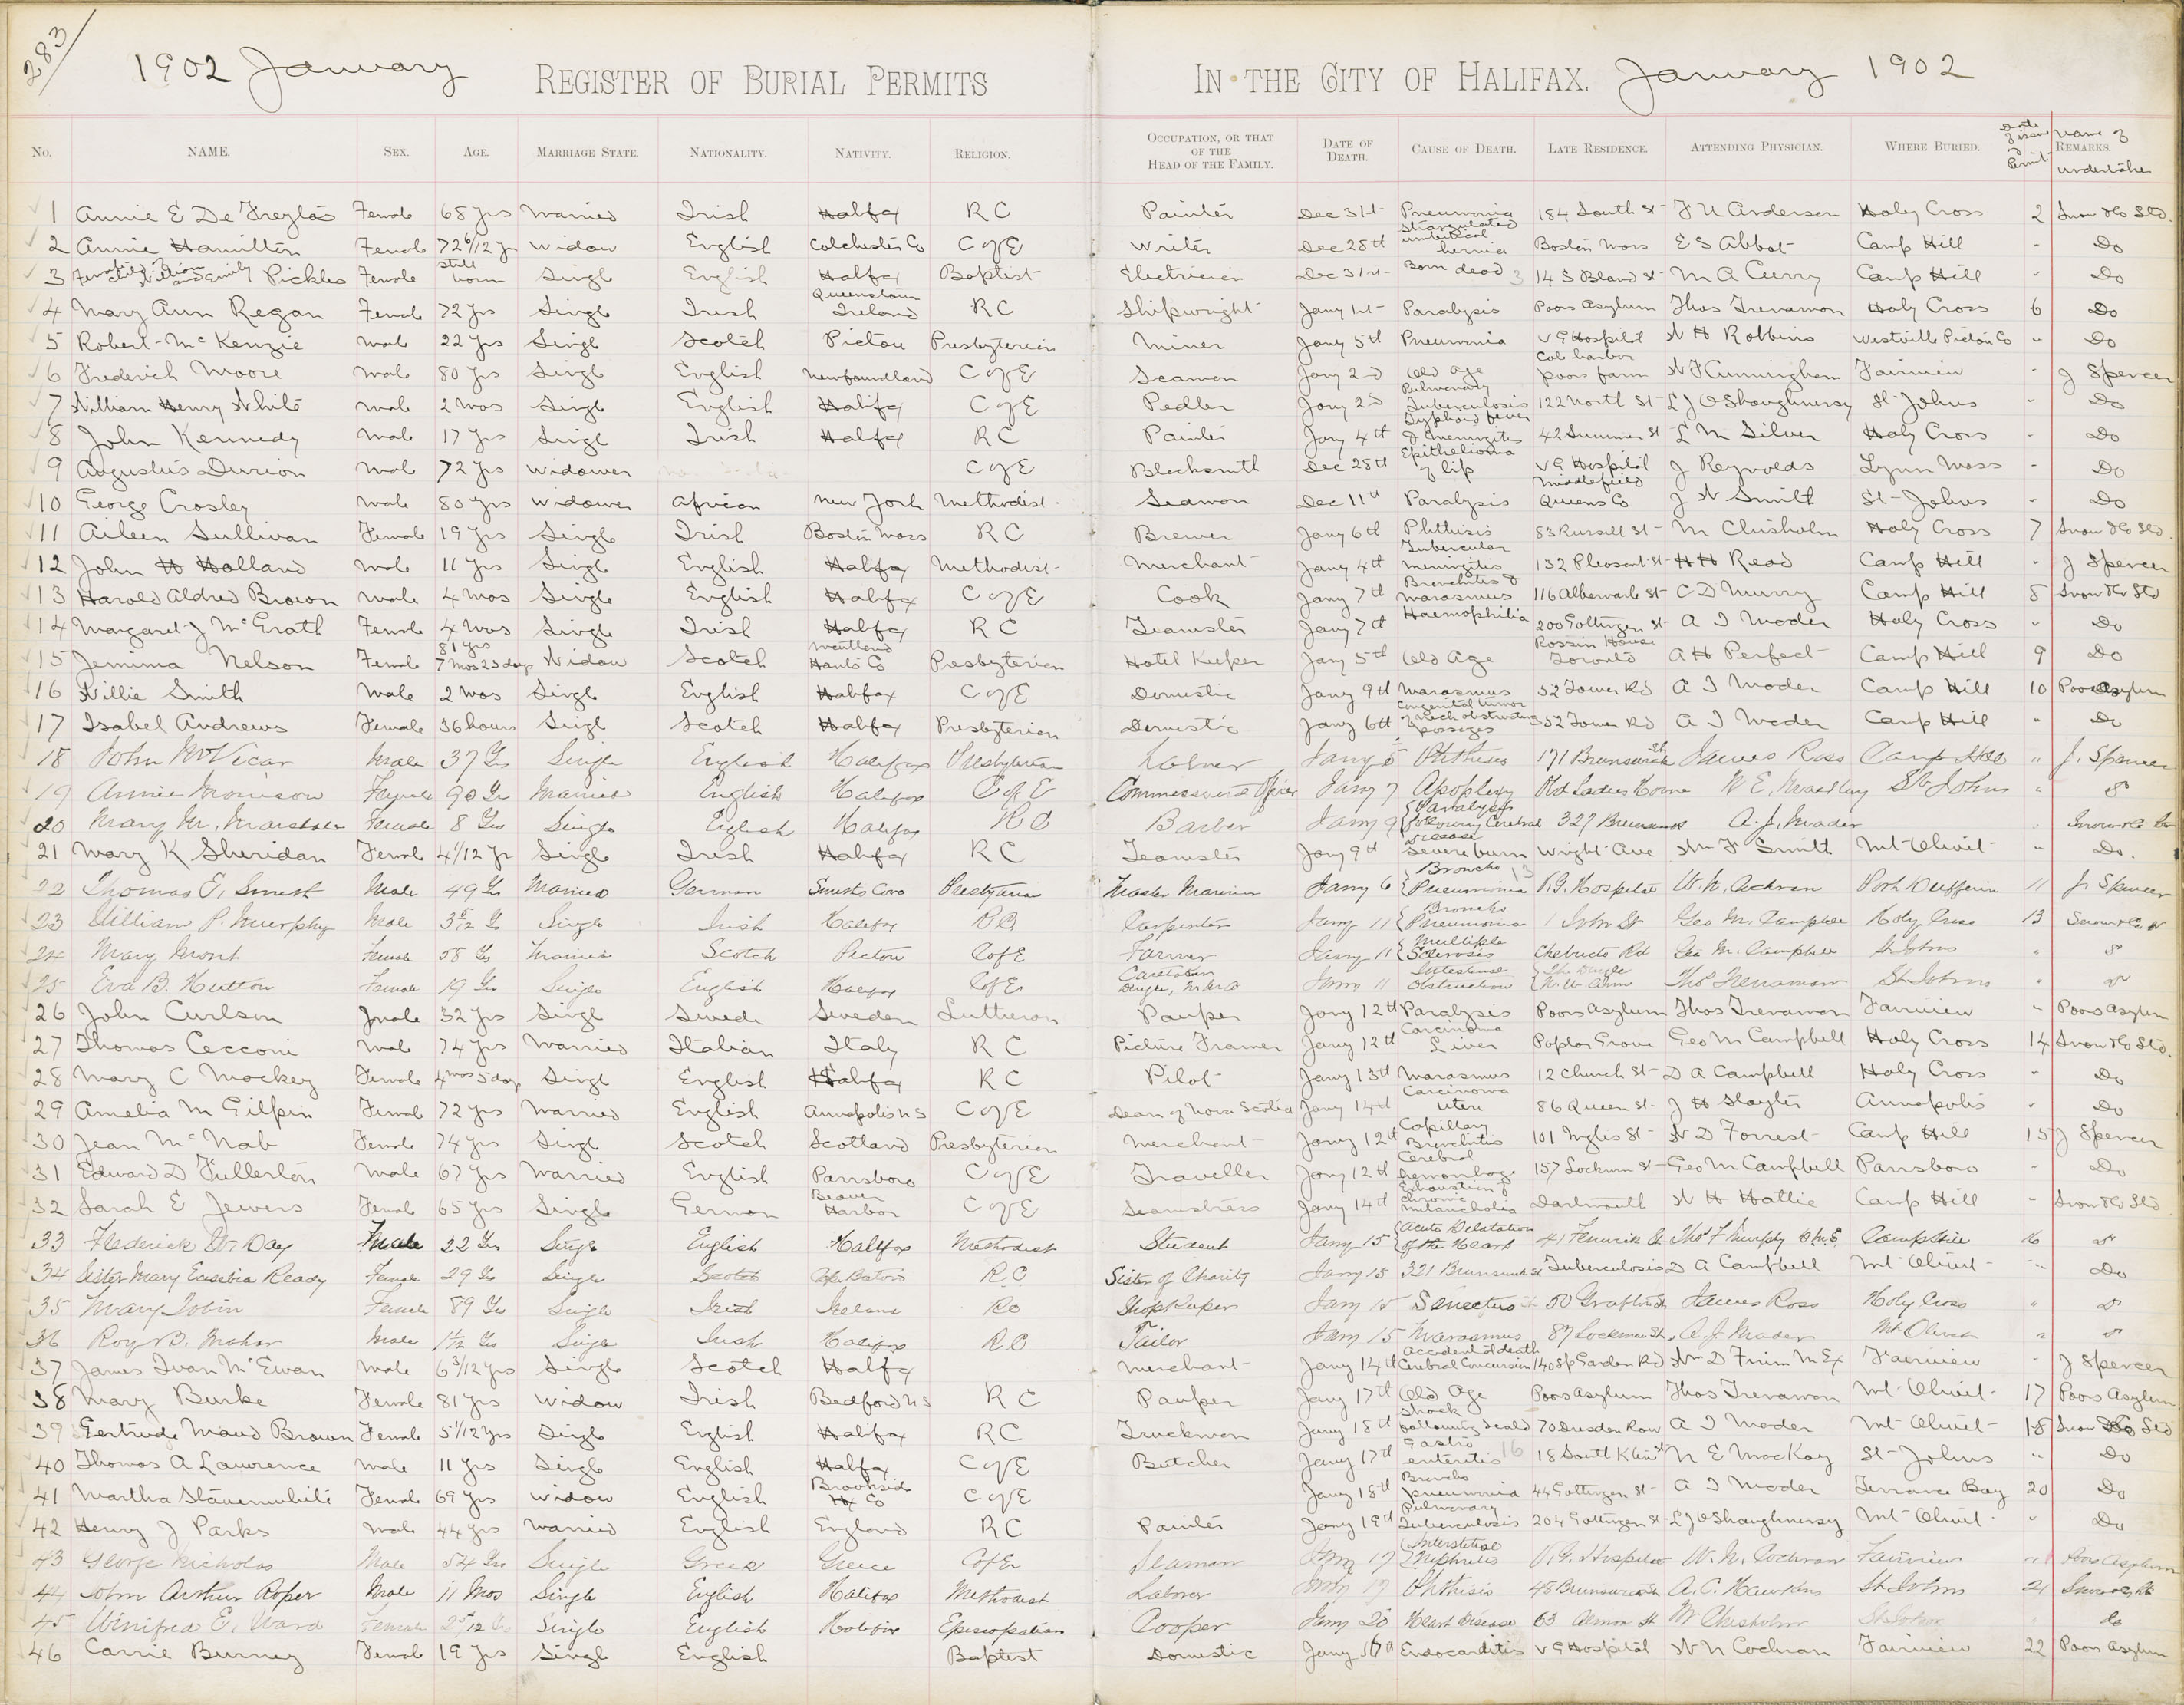 283
1902 January REGISTER OF BURIAL PERMITS IN THE CITY OF HALIFAX. January 1902
No. NAME. SEX. AGE. MARRIAGE STATE. NATIONALITY. NATIVITY. RELIGION. OCCUPATION, OR THAT OF THE HEAD OF THE FAMILY. DATE OF DEATH. CAUSE OF DEATH. LATE RESIDENCE. ATTENDING PHYSICIAN. WHERE BURIED. Date of issue of Permit REMARKS. Name of undertaker
1 Annie E De Freytas Female 68 yrs Married Irish Halifax R C Painter Dec 31st Pneumonia 184 South St F U Anderson Holy Cross 2 Snow & Co Ltd
2 Annie Hamilton Female 72 6/12 yr Widow English Colchester Co C of E Writer Dec 28th Strangulated umbilical hernia Boston Mass E S Abbot Camp Hill " Do
3 William and Emily Pickles Female Still born Single English Halifax Baptist Electrician Dec 31st Born dead 14 S Bland St M A Curry Camp Hill " Do
4 Mary Ann Regan Female 72 yrs Single Irish Queenstown Ireland R C Shipwright Jany 1st Paralysis Poors Asylum Thos Trenaman Holy Cross 6 Do
5 Robert McKenzie Male 22 yrs Single Scotch Pictou Presbyterian Miner Jany 5th Pneumonia V G Hospital W H Robbins Westville Pictou Co " Do
6 Frederich Moore Male 80 yrs Single English Newfoundland C of E Seaman Jany 2nd Old Age Cole harbor poors farm N F Cunningham Fairview " J Spencer
7 William Henry White Male 2 mos Single English Halifax C of E Pedler Jany 2nd Pulmonary Tuberculosis 122 North St L J O Shaughnessy St Johns " Do
8 John Kennedy Male 17 yrs Single Irish Halifax R C Painter Jany 4th Typhoid fever & meningites 42 Summer St L M Silver Holy Cross " Do
9 Augustus Durion Male 72 yrs Widower C of E Blacksmith Dec 28th Epithelioma of lip V G Hospital J Reynolds Lynn Mass " Do
10 George Crosley Male 80 yrs Widower African New York Methodist Seaman Dec 11th Paralysis Middlefield Queens Co J N Smith St Johns " Do
11 Aileen Sullivan Female 19 yrs Single Irish Boston Mass R C Brewer Jany 6th Phthisis 83 Russell St M Chisholm Holy Cross 7 Snow & Co Ltd.
12 John H Holland Male 11 yrs Single English Halifax Methodist Merchant Jany 4th Tubercular meningitis 132 Pleasant St H H Read Camp Hill " J Spencer
13 Harold Aldred Brown Male 4 mos Single English Halifax C of E Cook Jany 7th Bronchites & marasmus 116 Albemarle St C D Murry Camp Hill 8 Snow & Co Ltd
14 Margaret J McGrath Female 4 mos Single Irish Halifax R C Teamster Jany 7th Haemophilia 200 Gottingen St A I Mader Holy Cross " Do
15 Jemima Nelson Female 81 yrs 7 mos 23 days Widow Scotch Hants Co Presbyterian Hotel Keeper Jany 5th Old Age Rossin House Toronto A H Perfect Camp Hill 9 Do
16 Willie Smith Male 2 mos Single English Halifax C of E Domestic Jany 9th Marasmus 52 Tower Rd A I Mader Camp Hill 10 Poors Asylum
17 Isabel Andrews Female 36 hours Single Scotch Halifax Presbyterian Domestic Jany 6th Congenital tumor of neck obstructing passages 52 Tower Rd A I Mader Camp Hill " Do
18 John McVicar Male 37 Yrs Single English Halifax Presbyterian Labrer Jany 8 Phthisis 171 Brunswick St James Ross Camp Hill " J. Spencer
19 Annie Morrison Female 90 Yrs Married English Halifax C of E Jany 7 Apoplexy Old Ladies Home St Johns "
20 Mary M. Marshall Female 8 Yrs Single English Halifax R C Barber Jany 9 Paralysis following Cerebral disease 327 Brunswick A. J. Mader Snow & Co Ltd
21 Mary K Sheridan Female 4 1/12 yr Single Irish Halifax R C Teamster Jany 9th Severe burn Wright Ave Wm F Smith Mt Olivet " Do.
22 Thomas E. Smith Male 49 Yrs Married German Smiths Cove Presbyterian Master Mariner Jany 6 Broncho Pneumonia V.G. Hospital W. N. Cochran Port Dufferin 11 J. Spencer
23 William P. Murphy Male 3 5/12 Yr Single Irish Halifax R C Carpenter Jany 11 Broncho Pneumonia 1 John St Geo M. Campbell Holy Cross 13 Snow & Co
24 Mary Mont Female 58 Yrs Married Scotch Pictou C of E Farmer Jany 11 Multiple Sclerosis Chebucto Rd Geo M. Campbell St Johns "
25 Eva B. Hutton Female 19 Yrs Single English Halifax C of E Caretaker Jany 11 Intestinal Obstruction The Dingle N. W. Arm Tho Trenaman St Johns "
26 John Curlson Male 32 yrs Single Swede Sweden Lutheran Pauper Jany 12th Paralysis Poors Asylum Thos Trenaman Fairview " Poors Asylum
27 Thomas Cecconi Male 74 yrs Married Italian Italy R C Picture Framer Jany 12th Carcinoma Liver Poplar Grove Geo M Campbell Holy Cross 14 Snow & Co Ltd.
28 Mary C Mackey Female 4 mos 5 days Single English Halifax R C Pilot Jany 13th Marasmus 12 Church St D A Campbell Holy Cross " Do
29 Amelia M Gilpin Female 72 yrs Married English Annapolis N S C of E Dean of Nova Scotia Jany 14th Carcinoma uteri 86 Queen St J H Slayter Annapolis " Do
30 Jean McNab Female 74 yrs Single Scotch Scotland Presbyterian Merchant Jany 12th Capillary Bronchitis 101 Inglis St W D Forrest Camp Hill 15 J Spencer
31 Edward D Fullerton Male 67 yrs Married English Parrsboro C of E Traveller Jany 12th Cerebral Hemorrhage 157 Lockman St Geo M Campbell Parrsboro " Do
32 Sarah E Jewers Female 65 yrs Single German Beaver Harbor C of E Seamstress Jany 14th Exhaustion chronic melancholia Dartmouth W H Hattie Camp Hill " Snow & Co Ltd
33 Frederick W. Day Male 22 Yrs Single English Halifax Methodist Student Jany 15 Acute Dilatation of the Heart 41 Fenwick St Tho F Murphy Camp Hill 16
34 Sister Mary Eusebia Ready Female 29 Yrs Single Scotch Cape Breton R C Sister of Charity Jany 15 321 Brunswick St Tuberculosis D A Campbell Mt Olivet " Do
35 Mary Tobin Female 89 Yrs Single Irish Ireland R C Shop Keeper Jany 15 Senectus 50 Grafton St James Ross Holy Cross "
36 Roy B. Mahar Male 1 1/12 Yrs Single Irish Halifax R C Tailor Jany 15 Marasmus 87 Lockman St. A. J. Mader Mt Olivet "
37 James Ivan McEwan Male 6 3/12 yrs Single Scotch Halifax Merchant Jany 14th Accident of death Cerebral Concursion 140 Sp Garden Rd Wm D Finn M Ex Fairview " J Spencer
38 Mary Burke Female 81 yrs Widow Irish Bedford N S R C Pauper Jany 17th Old Age Poors Asylum Thos Trenaman Mt Olivet 17 Poors Asylum
39 Gertrude Maud Brown Female 5 1/12 yrs Single English Halifax R C Truckman Jany 18th Shock following scald 70 Dresden Row A I Mader Mt Olivet 18 Snow & Co Ltd
40 Thomas A Lawrence Male 11 yrs Single English Halifax C of E Butcher Jany 17th Gastro enteritis 16 18 South Kline St N E MacKay St Johns " Do
41 Martha Slauenwhite Female 69 yrs Widow English Brookside Hx Co C of E Jany 18th Broncho pneumonia 44 Gottingen St A I Mader Terrance Bay 20 Do
42 Henry J Parks Male 44 yrs Married English England R C Painter Jany 19th Pulmonary Tuberculosis 204 Gottingen St L J O Shaughnessy Mt Olivet " Do
43 George Nicholas Male 54 Yrs Single Greek Greece C of E Seaman Jany 17 Interstitial Nephritis V.G. Hospital W. N. Cochran Fairview " Poors Asylum
44 John Arthur Roper Male 11 Mos Single English Halifax Methodist Labrer Jany 19 Phthisis 48 Brunswick St A. C. Hawkins St Johns 21 Snow & Co Ltd
45 Winifred E. Ward Female 2 5/12 Single English Halifax Episcopalian Cooper Jany 20 Heart Disease 63 Almon St M Chisholm St Johns do
46 Carrie Burney Female 19 yrs Single English Baptist Domestic Jany 16th Endocarditis V G Hospital W N Cochran Fairview 22 Poors Asylum